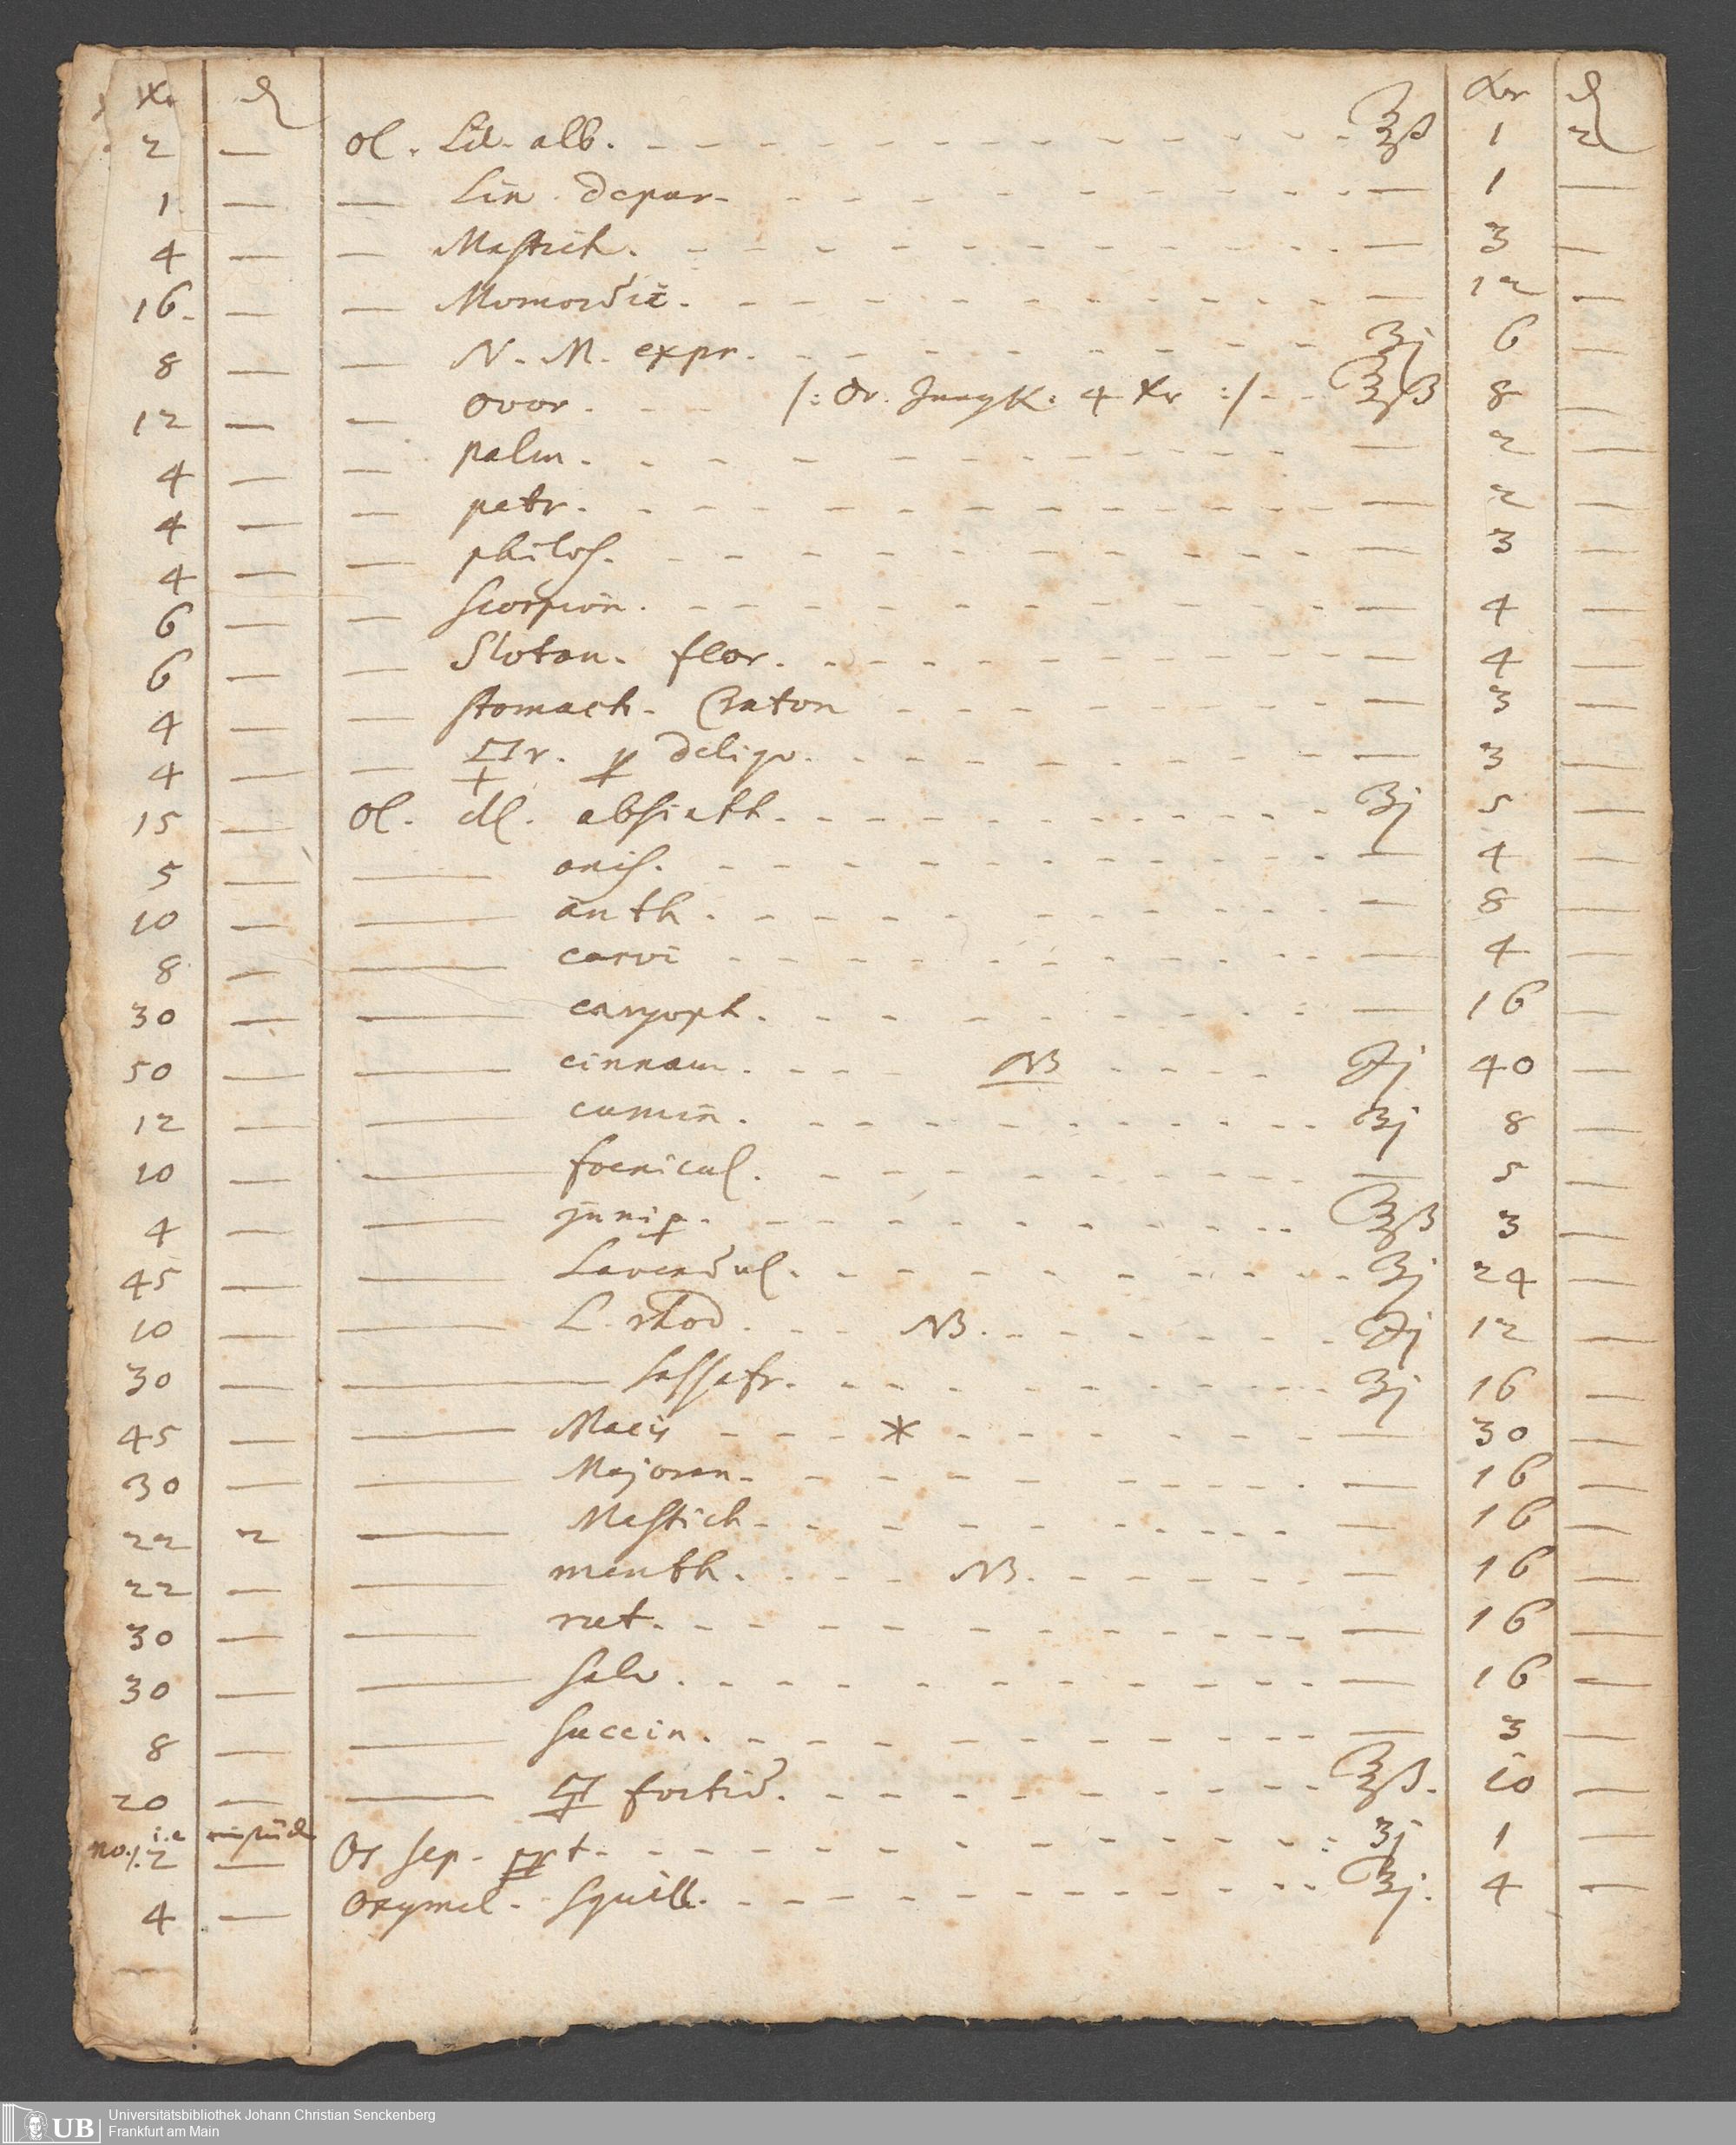 Xr ₰ Xer ₰
2 — Ol. Lil. alb. - - - ℥ß 1 2
1 — — Lin. depur. - - - — 1 —
4 — — Mastich. - - - — 3 —
16. — — Momordic. - - - — 12 —
8 — — N. M. expr. - - - ʒj 6 —
12 — — Ovor. - - - /: Dr. Jungk. 4 Xr :/ - - ℥ß 8 —
4 — — palm. - - - — 2 —
4 — — petr. - - - — 2 —
4 — — philos. - - - — 3 —
6 — — Scorpion. - - - — 4 —
6 — — flor. - - - — 4 —
4 — — stomach. Craton - - - — 3 —
4 — — 🜿r. p deliqu. - - - — 3 —
15 — Ol. dl. absinth. - - - ʒj 5 —
5 — — anis. - - - — 4 —
10 — — anth. - - - — 8 —
8 — — carvi - - - — 4 —
30 — — caryoph. - - - — 16 —
50 — — cinnam. - - - NB - - - ℈j 40 —
12 — — cumin. - - - ʒj 8 —
10 — — foenicul. - - - — 5 —
4 — — junip. - - - ℥ß 3 —
45 — — Lavendul. - - - ʒj 24 —
10 — — L. rhod. - - - NB. - - - ℈j 12 —
30 — — Sassafr. - - - ʒj 16 —
45 — — Macis - - - * - - - — 30 —
30 — — Majoran. - - - — 16 —
22 2 — Mastich - - - — 16 —
22 — — menth. - - - NB. - - - — 16 —
30 — — rut. - - - — 16 —
30 — — Salv. - - - — 16 —
8 — — Succin. - - - — 3 —
20 — — 🜿 foetid. - - - ℥ß. 10 —
no. 1. i.e
2 — Os sep. ppt. - - - ʒj 1 —
4 — Oxymel. Squill. - - - ℥j. 4 —
UB Universitätsbibliothek Johann Christian Senckenberg
Frankfurt am Main